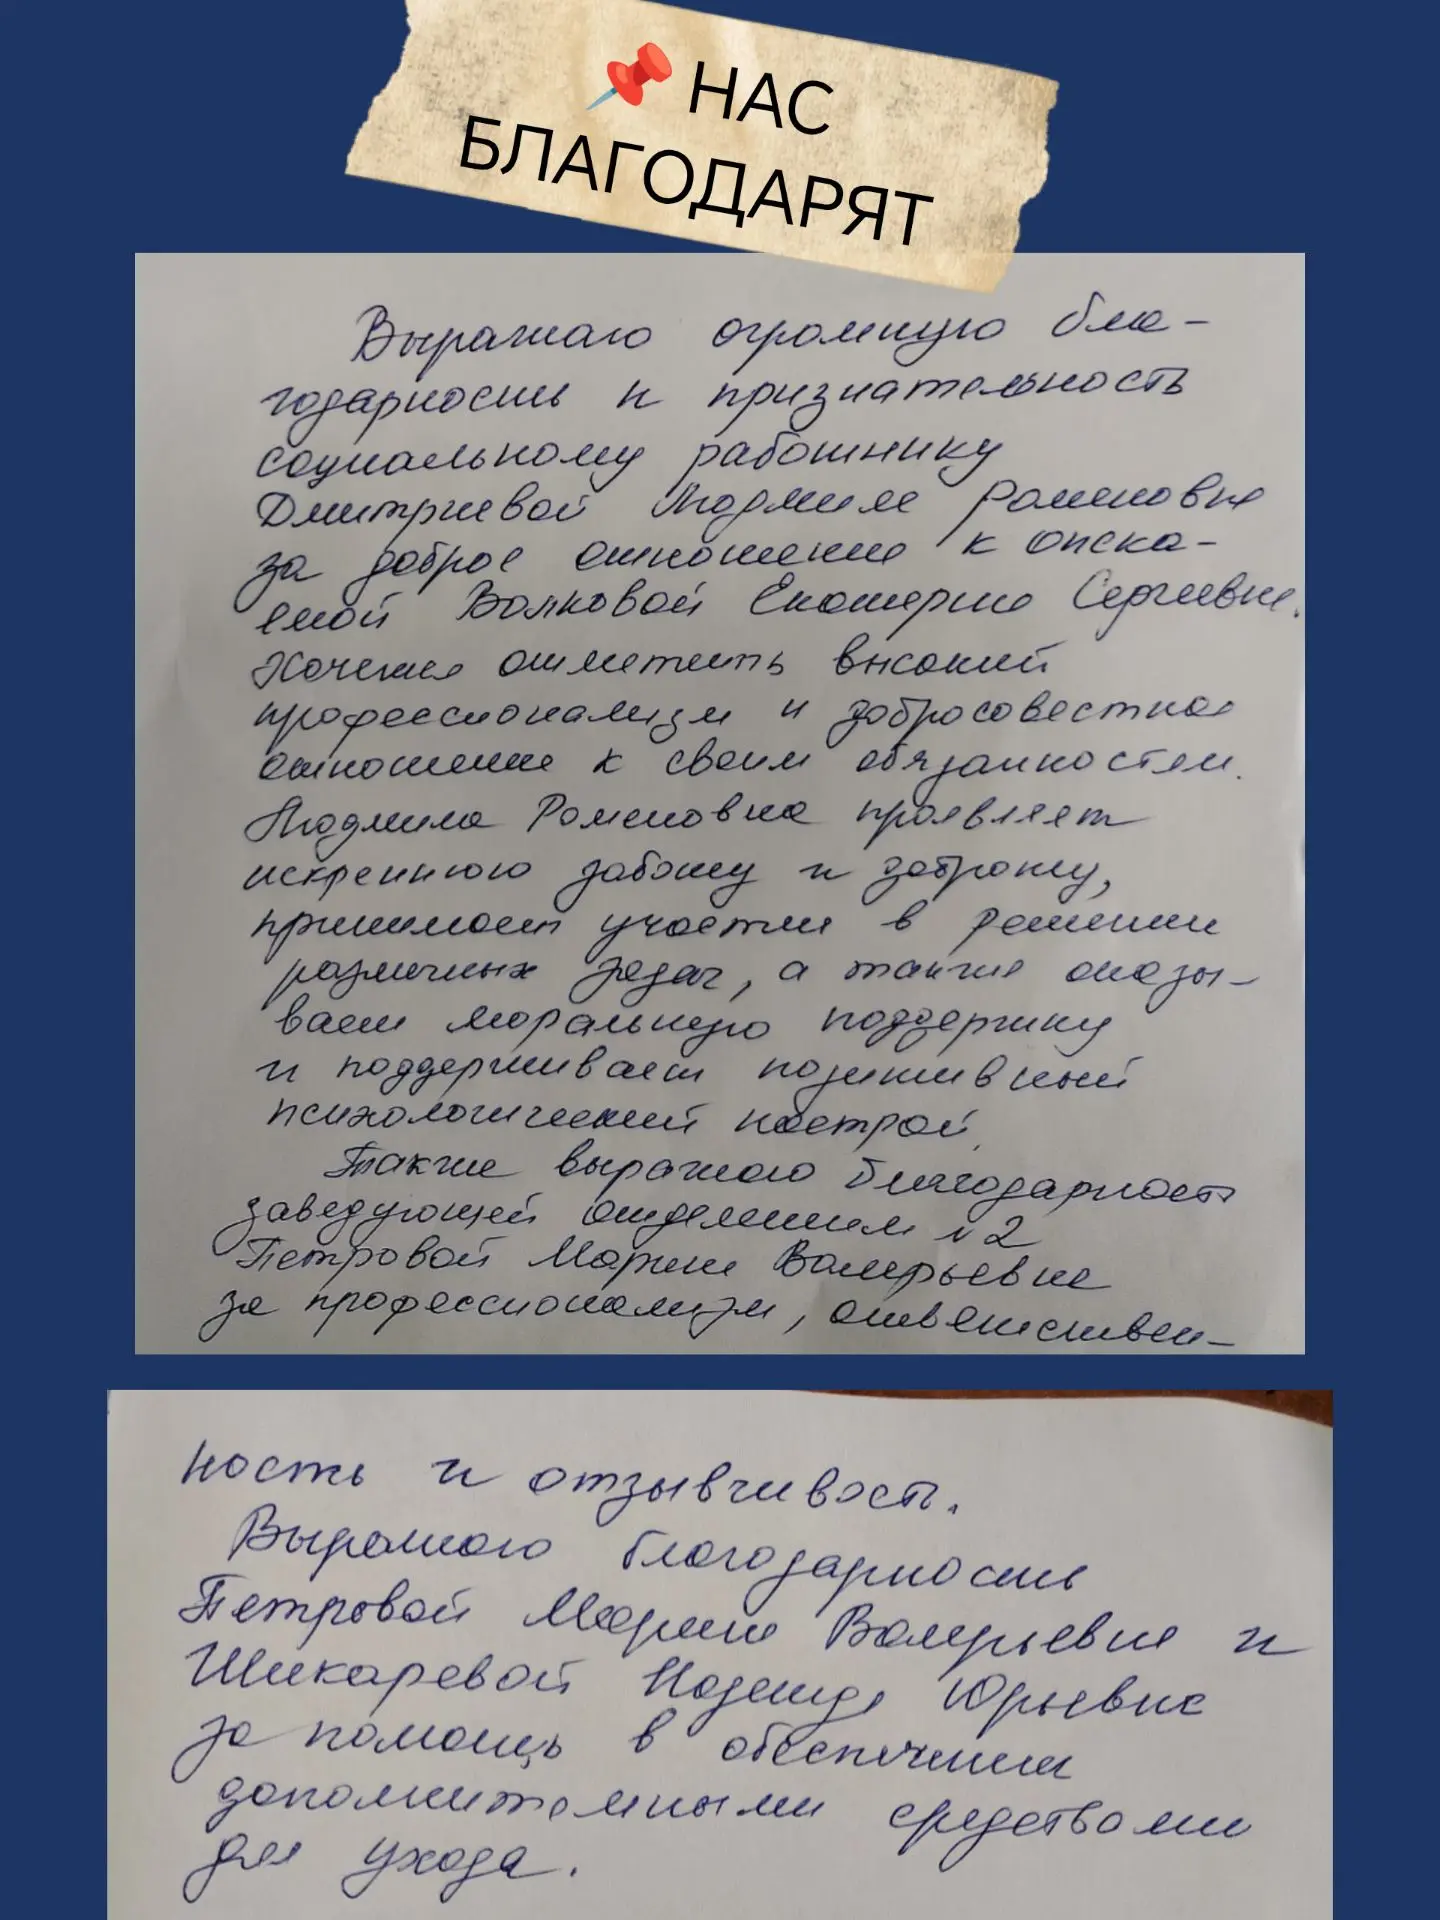 📌 НАС
БЛАГОДАРЯТ
Выражаю огромную бла-
годарность и признательность
социальному работнику
Дмитриевой Людмиле Романовне
за доброе отношение к опека-
емой Волковой Екатерине Сергеевне.
Хочется отметить высокий
профессионализм и добросовестное
отношение к своим обязанностям.
Людмила Романовна проявляет
искреннюю заботу и доброту,
принимает участие в решении
различных задач, а также оказы-
вает моральную поддержку
и поддерживает позитивный
психологический настрой.
Также выражаю благодарность
заведующей отделением №2
Петровой Марине Валерьевне
за профессионализм, ответствен-
ность и отзывчивость.
Выражаю благодарность
Петровой Марине Валерьевне и
Шикаревой Надежде Юрьевне
за помощь в обеспечении
дополнительными средствами
для ухода.